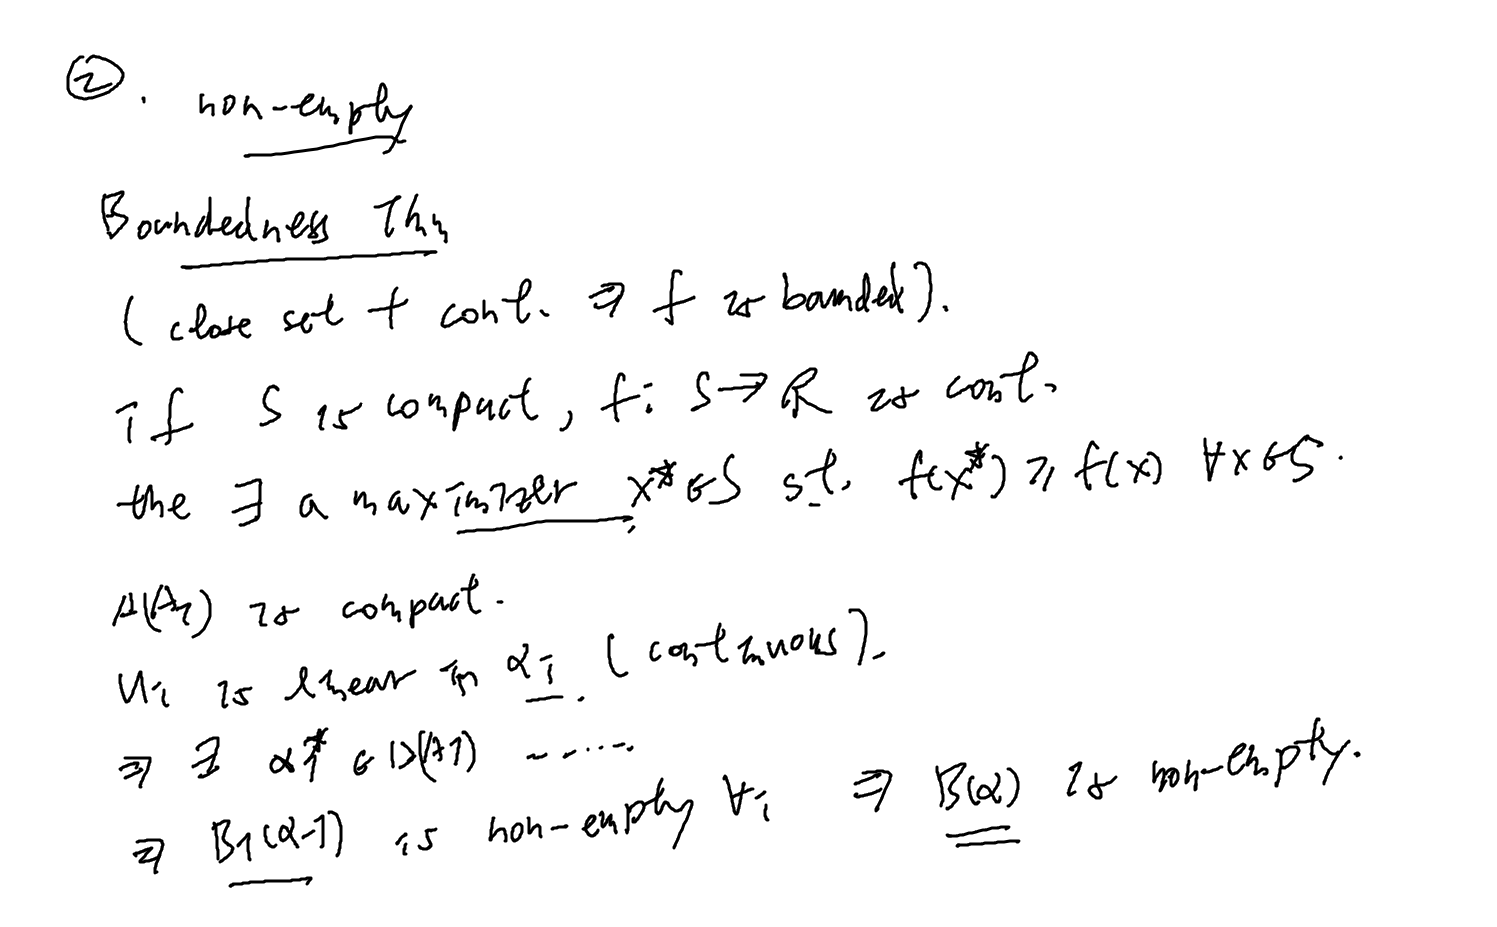 ②. non-empty
Boundedness Thm
( close set + cont. ⇒ f is bounded ).
If S is compact, f: S → R is cont.
the ∃ a maximizer x* ∈ S st. f(x*) ≥ f(x) ∀x ∈ S.
Δ(Ai) is compact.
Ui is linear in αi. ( continuous ).
⇒ ∃ αi* ∈ Δ(Ai) ......
⇒ Bi(α-i) is non-empty ∀i ⇒ B(α) is non-empty.